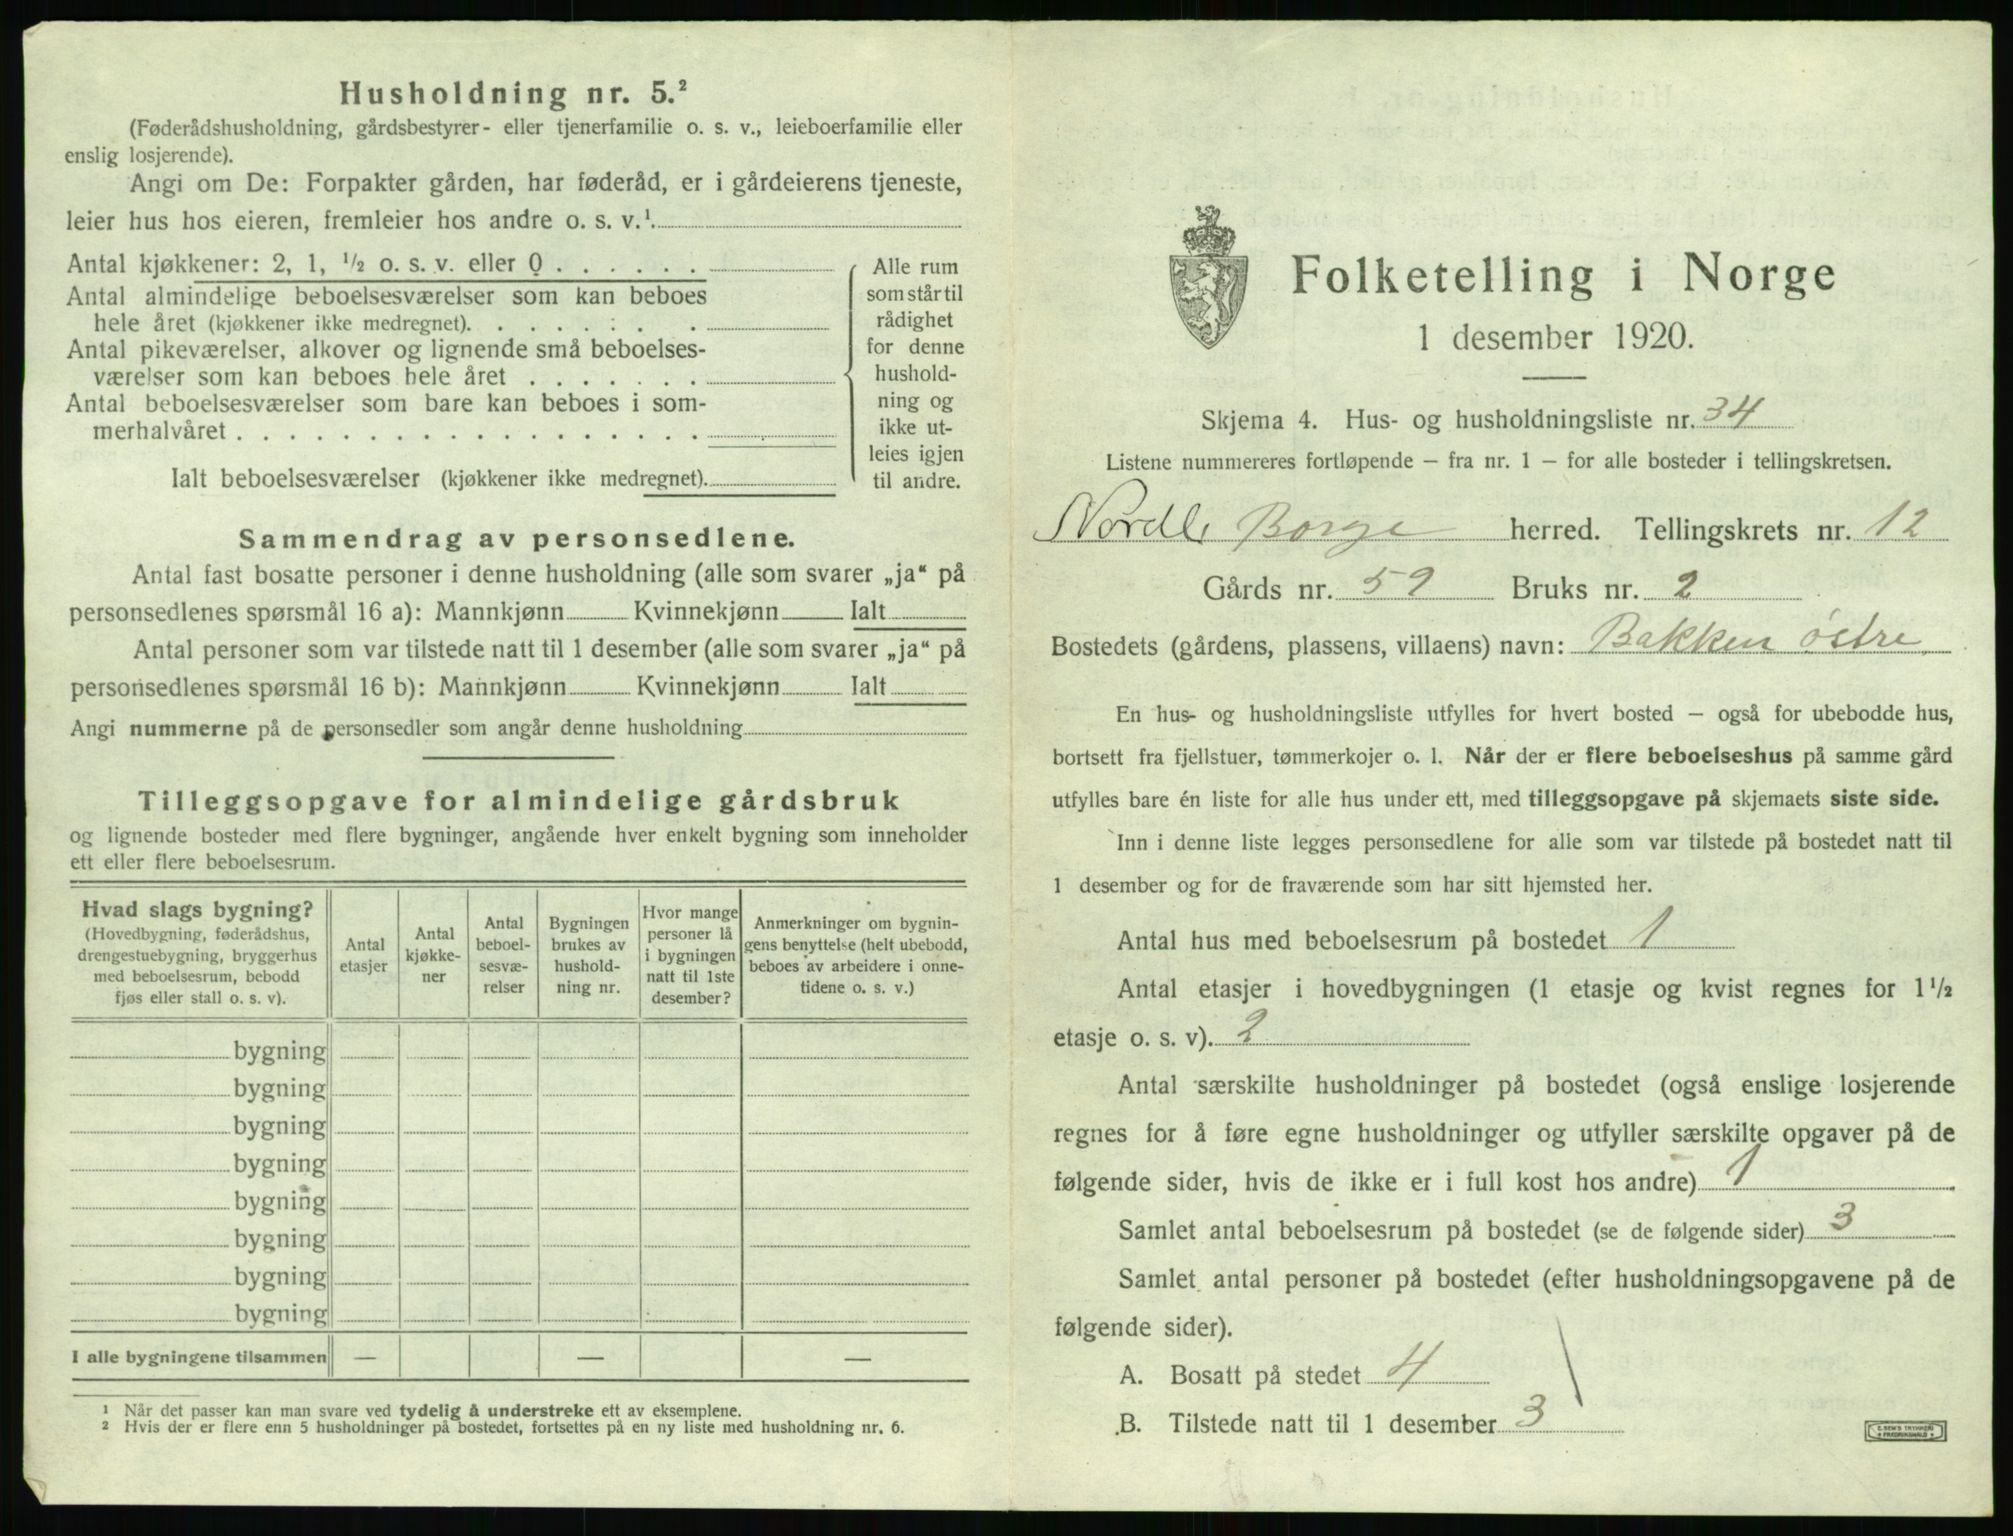 Husholdning nr. 5.²
(Føderådshusholdning, gårdsbestyrer- eller tjenerfamilie o. s. v., leieboerfamilie eller
enslig losjerende).
Angi om De: Forpakter gården, har føderåd, er i gårdeierens tjeneste,
leier hus hos eieren, fremleier hos andre o. s. v.¹
Antal kjøkkener: 2, 1, ½ o. s. v. eller 0 . . . . . .
Antal almindelige beboelsesværelser som kan beboes
hele året (kjøkkener ikke medregnet). . . . . . . .
Antal pikeværelser, alkover og lignende små beboelses-
værelser som kan beboes hele året . . . . . . .
Antal beboelsesværelser som bare kan beboes i som-
merhalvåret . . . . . . . . . . . . . . . . . .
Ialt beboelsesværelser (kjøkkener ikke medregnet).
Alle rum
som står til
rådighet
for denne
hushold-
ning og
ikke ut-
leies igjen
til andre.
Sammendrag av personsedlene.
Antal fast bosatte personer i denne husholdning (alle som svarer „ja“ på
personsedlenes spørsmål 16 a): Mannkjønn Kvinnekjønn Ialt
Antal personer som var tilstede natt til 1 desember (alle som svarer „ja“ på
personsedlenes spørsmål 16 b): Mannkjønn Kvinnekjønn Ialt
Angi nummerne på de personsedler som angår denne husholdning
Tilleggsopgave for almindelige gårdsbruk
og lignende bosteder med flere bygninger, angående hver enkelt bygning som inneholder
ett eller flere beboelsesrum.
Hvad slags bygning?
(Hovedbygning, føderådshus,
drengestuebygning, bryggerhus
med beboelsesrum, bebodd
fjøs eller stall o. s. v).
Antal
etasjer
Antal
kjøkke-
ner
Antal
beboel-
sesvæ-
relser
Bygningen
brukes av
hushold-
ning nr.
Hvor mange
personer lå
i bygningen
natt til 1ste
desember?
Anmerkninger om bygnin-
gens benyttelse (helt ubebodd,
beboes av arbeidere i onne-
tidene o. s. v.)
bygning
bygning
bygning
bygning
bygning
bygning
bygning
bygning
I alle bygningene tilsammen — — —
1 Når det passer kan man svare ved tydelig å understreke ett av eksemplene.
2 Hvis der er flere enn 5 husholdninger på bostedet, fortsettes på en ny liste med husholdning nr. 6.
Folketelling i Norge
1 desember 1920.
Skjema 4. Hus- og husholdningsliste nr. 34
Listene nummereres fortløpende – fra nr. 1 – for alle bosteder i tellingskretsen.
Nordl. Borge herred. Tellingskrets nr. 12
Gårds nr. 59 Bruks nr. 2
Bostedets (gårdens, plassens, villaens) navn: Bakken østre
En hus- og husholdningsliste utfylles for hvert bosted – også for ubebodde hus,
bortsett fra fjellstuer, tømmerkojer o. l. Når der er flere beboelseshus på samme gård
utfylles bare én liste for alle hus under ett, med tilleggsopgave på skjemaets siste side.
Inn i denne liste legges personsedlene for alle som var tilstede på bostedet natt til
1 desember og for de fraværende som har sitt hjemsted her.
Antal hus med beboelsesrum på bostedet 1
Antal etasjer i hovedbygningen (1 etasje og kvist regnes for 1½
etasje o. s. v). 2
Antal særskilte husholdninger på bostedet (også enslige losjerende
regnes for å føre egne husholdninger og utfyller særskilte opgaver på de
følgende sider, hvis de ikke er i full kost hos andre) 1
Samlet antal beboelsesrum på bostedet (se de følgende sider) 3
Samlet antal personer på bostedet (efter husholdningsopgavene på de
følgende sider).
A. Bosatt på stedet 4
B. Tilstede natt til 1 desember 3